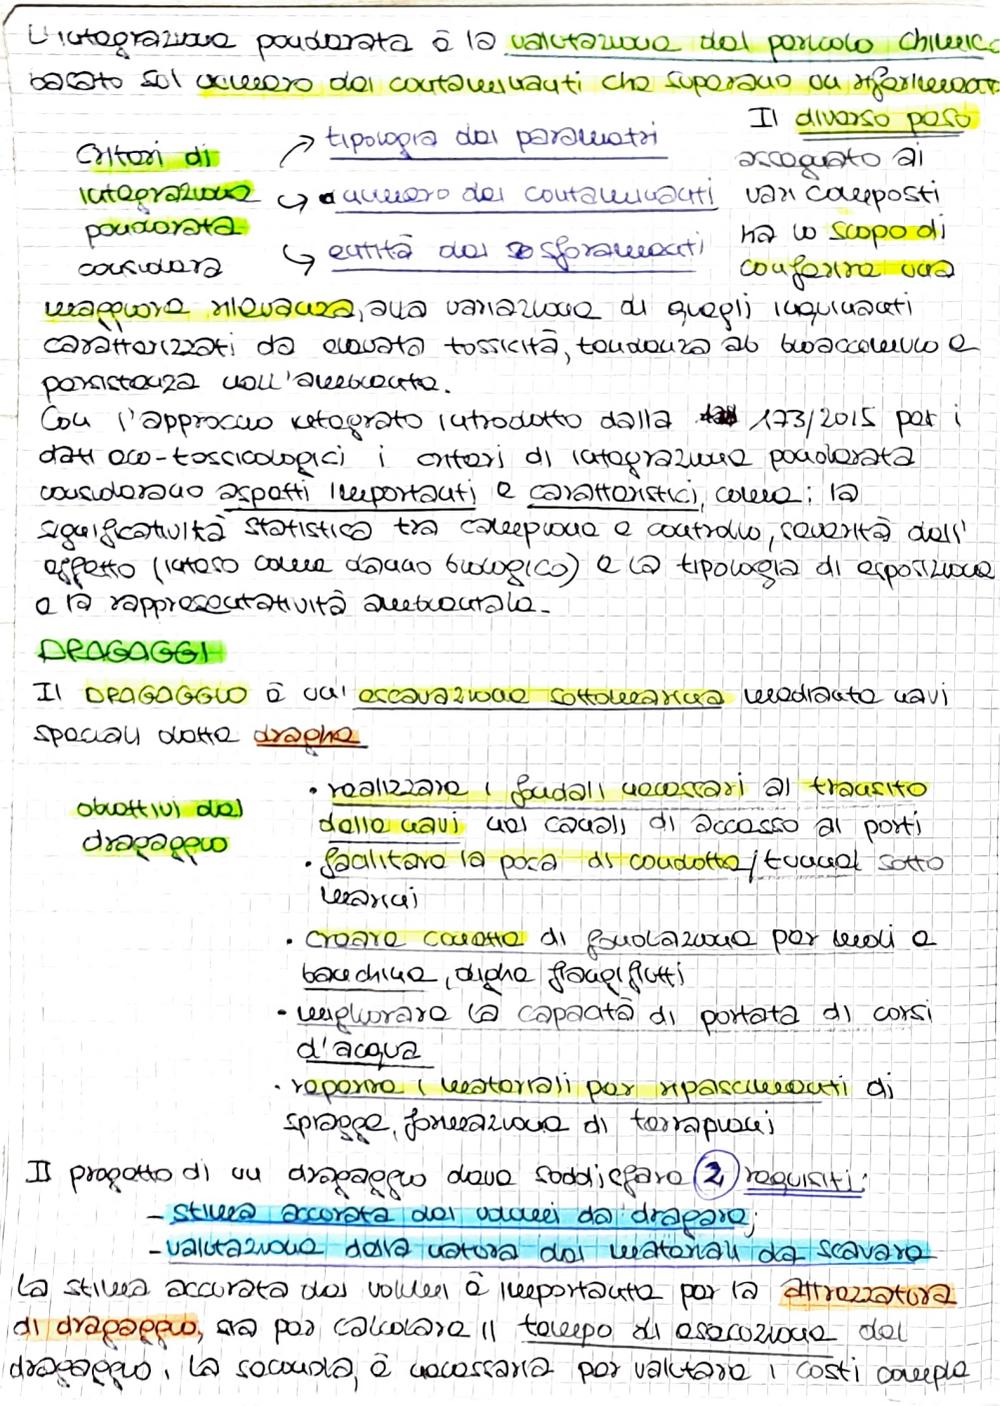 L'integrazione ponderata è la valutazione del pericolo chimico
basato sul numero dei contaminanti che superano un riferimento
Criteri di
integrazione
ponderata
considera
→ tipologia dei parametri
→ numero dei contaminanti
→ entità dei sforamenti
Il diverso peso
assegnato ai
vari composti
ha lo scopo di
conferire una
maggiore rilevanza, alla variazione di quegli inquinanti
caratterizzati da elevata tossicità, tendenza ab bioaccumulo e
persistenza nell'ambiente.
Con l'approccio integrato introdotto dalla 173/2015 per i
dati eco-tossicologici i criteri di integrazione ponderata
considerano aspetti importanti e caratteristici, come: la
significatività statistica tra campione e controllo, severità dell'
effetto (inteso come danno biologico) e la tipologia di esposizione
e la rappresentatività ambientale.
DRAGAGGI
Il DRAGAGGIO è un' escavazione sottomarina mediante navi
speciali dette draghe
obiettivi del
dragaggio
• realizzare i fondali necessari al transito
delle navi nei canali di accesso ai porti
• facilitare la posa di condotte/tunnel sotto
marini
• creare cunette di fondazione per moli e
banchine, dighe frangiflutti
• migliorare la capacità di portata di corsi
d'acqua
• reperire i materiali per ripascimenti di
spiagge, formazione di terrapieni
Il progetto di un dragaggio deve soddisfare 2 requisiti:
- stima accurata dei volumi da dragare;
- valutazione della natura dei materiali da scavare
La stima accurata dei volumi è importante per la attrezzatura
di dragaggio, sia per calcolare il tempo di esecuzione del
dragaggio. La seconda, è necessaria per valutare i costi comple